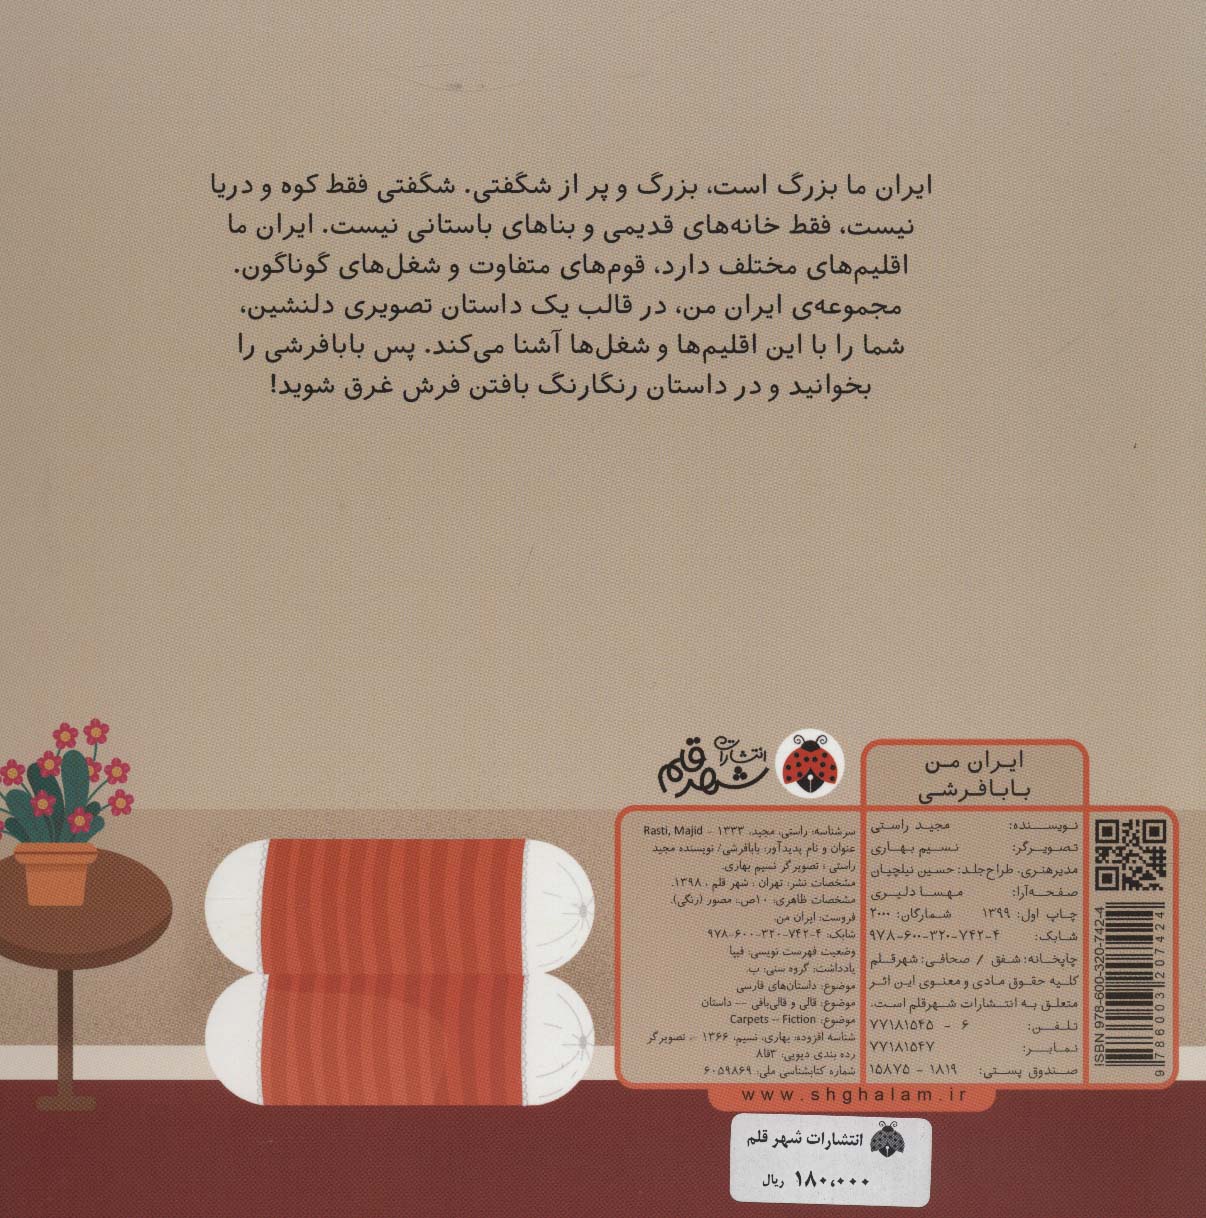 ایران ما بزرگ است، بزرگ و پر از شگفتی. شگفتی فقط کوه و دریا
نیست، فقط خانه‌های قدیمی و بناهای باستانی نیست. ایران ما
اقلیم‌های مختلف دارد، قوم‌های متفاوت و شغل‌های گوناگون.
مجموعه‌ی ایران من، در قالب یک داستان تصویری دلنشین،
شما را با این اقلیم‌ها و شغل‌ها آشنا می‌کند. پس بابافرشی را
بخوانید و در داستان رنگارنگ بافتن فرش غرق شوید!
انتشارات
شهر قلم
ایران من
بابافرشی
نویسنده: مجید راستی
تصویرگر: نسیم بهاری
مدیرهنری، طراح‌جلد: حسین نیلچیان
صفحه‌آرا: مهسا دلیری
چاپ اول: ۱۳۹۹ شمارگان: ۲۰۰۰
شابک: ۹۷۸-۶۰۰-۳۲۰-۷۴۲-۴
چاپخانه: شفق / صحافی: شهرقلم
کلیه حقوق مادی و معنوی این اثر
متعلق به انتشارات شهرقلم است.
تلفن: ۷۷۱۸۱۵۴۵ - ۶
نمابر: ۷۷۱۸۱۵۴۷
صندوق پستی: ۱۵۸۷۵ - ۱۸۱۹
سرشناسه: راستی، مجید، ۱۳۳۳ - Rasti, Majid
عنوان و نام پدیدآور: بابافرشی/ نویسنده مجید
راستی ؛ تصویرگر نسیم بهاری.
مشخصات نشر: تهران : شهر قلم ، ۱۳۹۸.
مشخصات ظاهری: ۱۰ص.: مصور (رنگی).
فروست: ایران من.
شابک: ۴-۷۴۲-۳۲۰-۶۰۰-۹۷۸
وضعیت فهرست نویسی: فیپا
یادداشت: گروه سنی: ب.
موضوع: داستان‌های فارسی
موضوع: قالی و قالی‌بافی -- داستان
موضوع: Carpets -- Fiction
شناسه افزوده: بهاری، نسیم، ۱۳۶۶ -، تصویرگر
رده بندی دیویی: ۳قا۸
شماره کتابشناسی ملی: ۶۰۵۹۸۶۹
ISBN 978-600-320-742-4
9 786003 207424
www.shghalam.ir
انتشارات شهر قلم
۱۸۰،۰۰۰ ریال